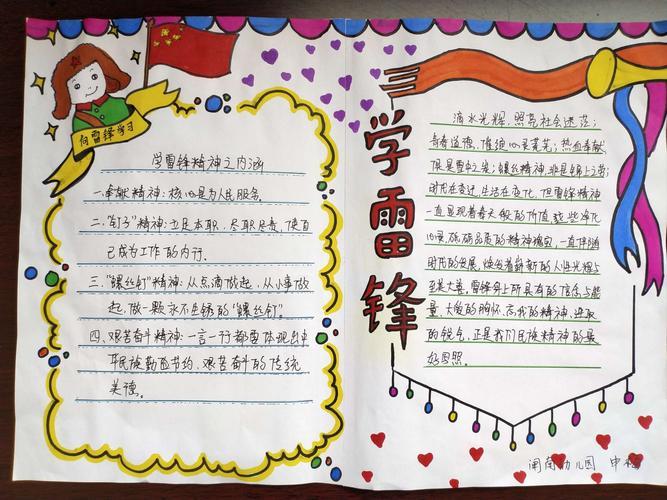 向雷锋学习
学雷锋精神之内涵
一.奉献精神:核心是为人民服务。
二."钉子"精神:立足本职、尽职尽责,使自
己成为工作的内行。
三."螺丝钉"精神:从点滴做起,从小事做
起,做一颗永不生锈的"螺丝钉"。
四、艰苦奋斗精神:一言一行都要体现出中
华民族勤俭节约、艰苦奋斗的传统
美德。
学雷锋
滴水光辉,照亮社会迷茫;
青春道德,谁绝心灵荒芜;热血奉献
保是雷中之炭;螺丝精神,非是锦上之花;
时代在变迁,生活在变化,但雷锋精神
一直显现着春天般的价值,这些净化
心灵、砥砺品质的精神瑰宝,一直伴随
时代的发展,焕发着崭新的人性光辉与
至美大爱。雷锋身上所具有的信念与能
量、大爱的胸怀、忘我的精神、进取
的锐气,正是我们民族精神的最
好写照。
闹南幼儿园 申